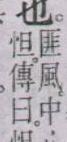 也。
匪風。中
怛。傳曰。